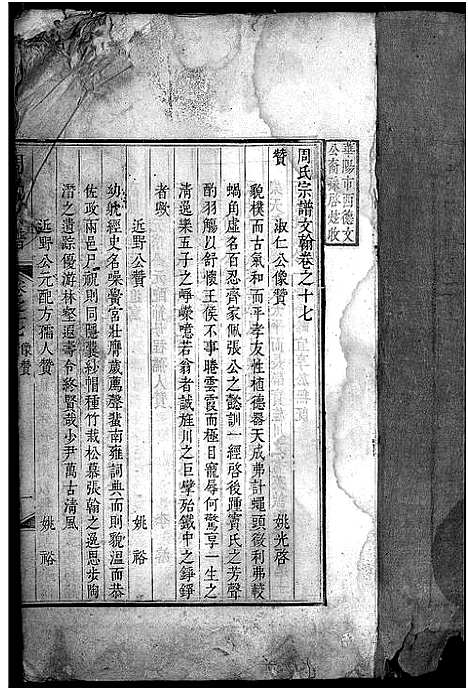 華陽市西德文
公裔緣啓灶收
周氏宗譜文翰卷之十七
贊
淑仁公像贊 姚光啓
貌樸而古氣和而平孝友性植德器天成弗計蠅頭後利弗較
蝸角虛名百忍齊家佩張公之懿訓一經啓後踵竇氏之芳聲
酌羽觴以舒懷王侯不事睠雲霞而極目寵辱何驚享一生之
清逸來五子之崢嶸噫若翁者誠旌川之巨擘殆鐵中之錚錚
者歟
近野公贊 姚裕
幼躭經史名噪黌宮壯膺歲薦聲蜚南雍詞典而則貌溫而恭
佐政兩邑尸祝則同隱囊紗帽種竹栽松慕張翰之逸思步陶
潛之遺踪優游林壑遐壽令終賢哉少尹萬古清風
近野公元配方孺人贊 姚裕